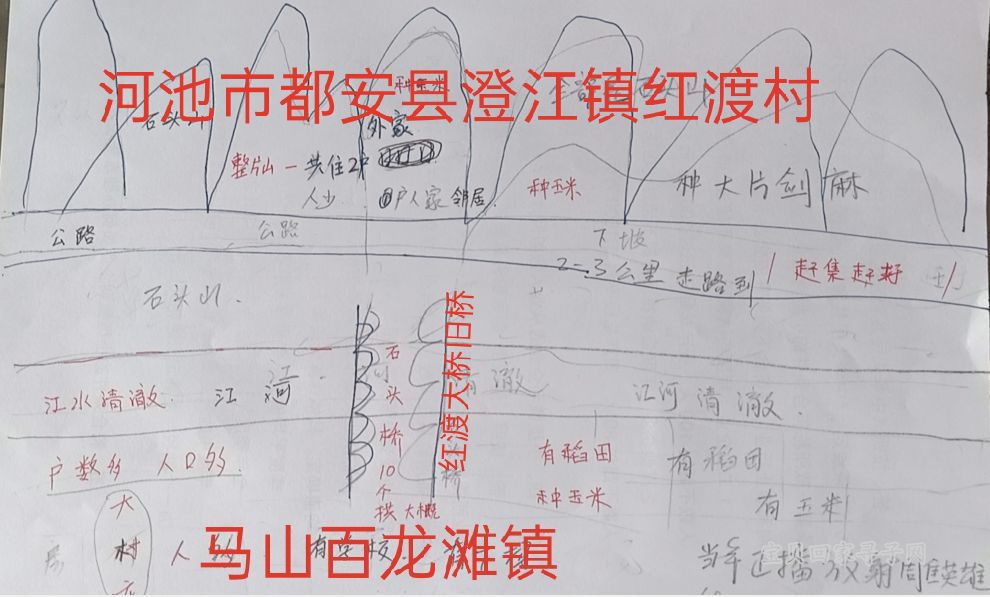 种玉米
河池市都安县澄江镇红渡村
石头山
外家
整片山一共住2户
人少
户人家 邻居
种玉米
种大片剑麻
公路
公路
下坡
2-3公里走路到
赶集赶圩
石头山.
红渡大桥旧桥
石头桥10个拱 大概
江水清澈.
江河
有 澈
江河清澈.
户数多 人口多.
有稻田
有稻田
种玉米
有玉米
大村
人多
有学校
马山百龙滩镇
当年正播
英雄
宝贝回家寻子网